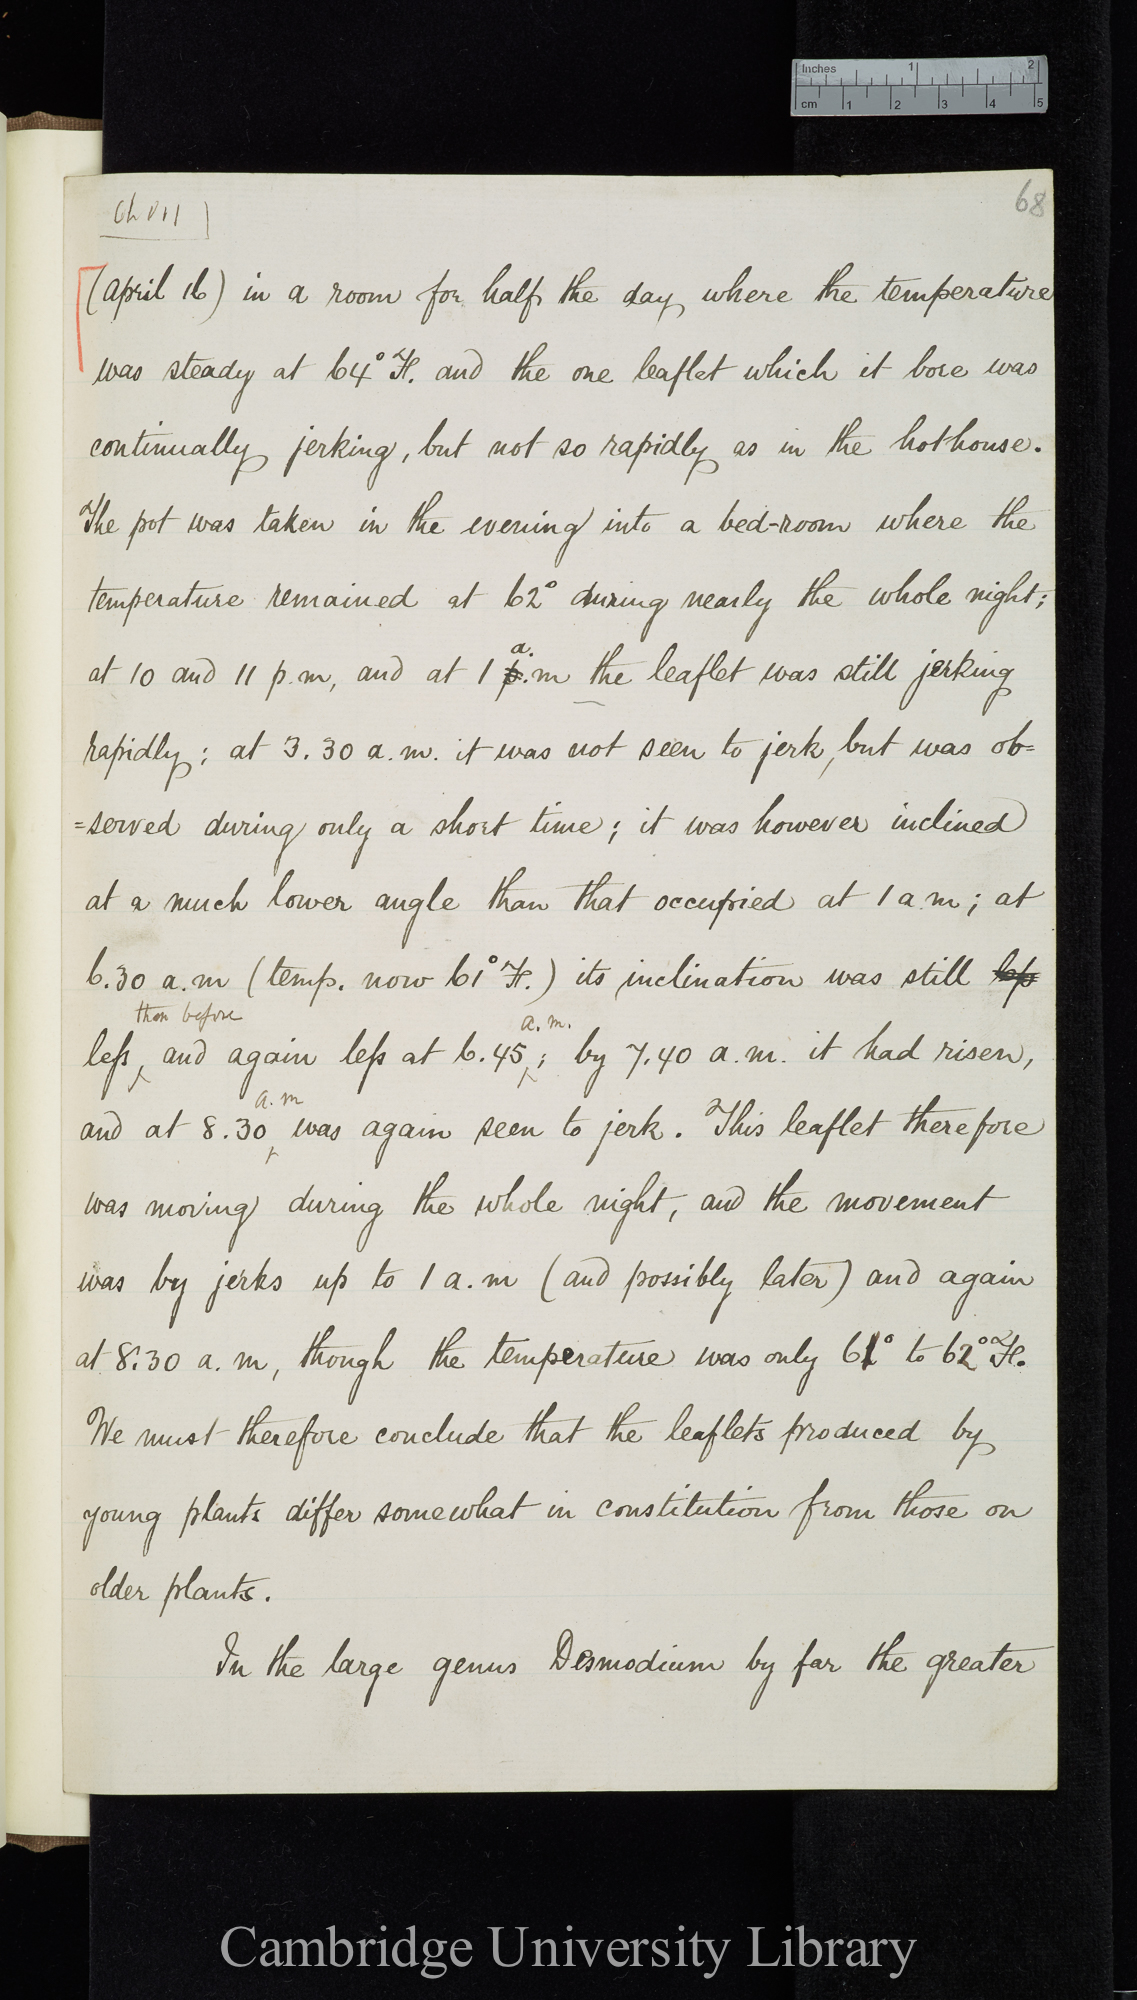 Inches 1 2
cm 1 2 3 4 5
68
Ch VII
(April 16) in a room for half the day where the temperature
was steady at 64° F. and the one leaflet which it bore was
continually jerking, but not so rapidly as in the hothouse.
The pot was taken in the evening into a bed-room where the
temperature remained at 62° during nearly the whole night;
a.
at 10 and 11 p.m, and at 1 p.m the leaflet was still jerking
rapidly; at 3.30 a.m. it was not seen to jerk, but was ob=
=served during only a short time; it was however inclined
at a much lower angle than that occupied at 1 a m; at
6.30 a.m (temp. now 61° F.) its inclination was still less
than before a.m.
less, and again less at 6.45; by 7.40 a.m. it had risen,
a.m
and at 8.30 was again seen to jerk. This leaflet therefore
was moving during the whole night, and the movement
was by jerks up to 1 a.m (and possibly later) and again
at 8.30 a.m, though the temperature was only 61° to 62° F.
We must therefore conclude that the leaflets produced by
young plants differ somewhat in constitution from those on
older plants.
In the large genus Desmodium by far the greater
Cambridge University Library